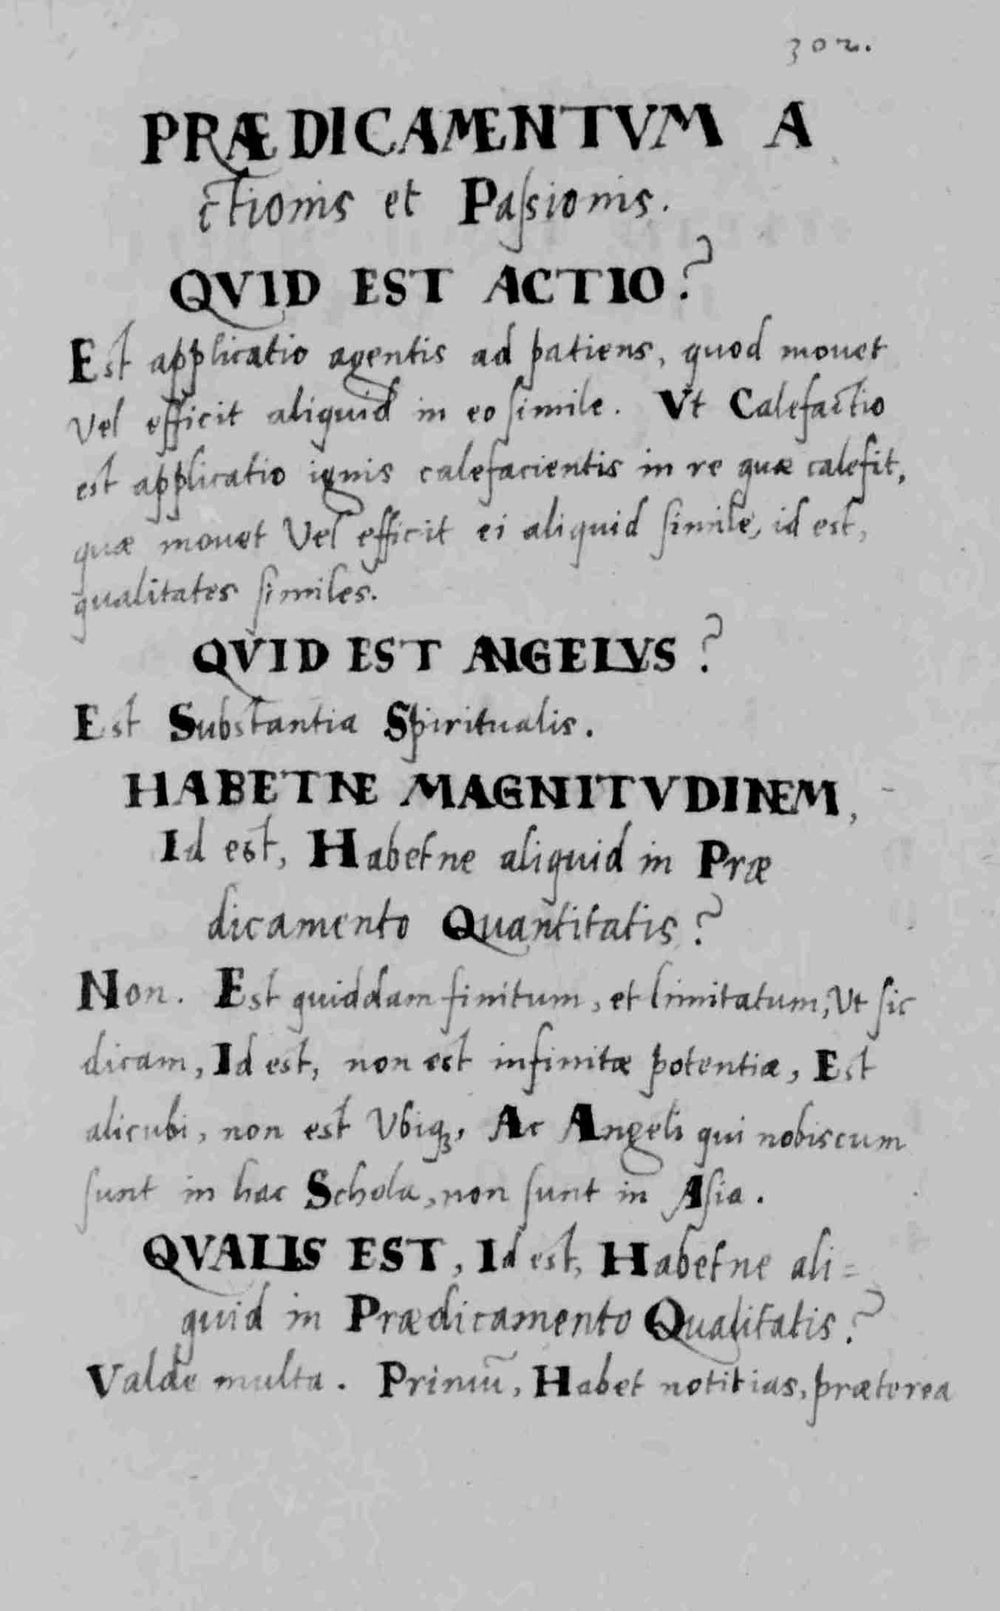 302.
PRÆDICAMENTVM A
ctionis et Paſsionis.
QVID EST ACTIO?
Est applicatio agentis ad patiens, quod mouet
Vel efficit aliquid in eo ſimile. Vt Calefactio
est applicatio ignis calefacientis in re quæ calefit,
quæ mouet Vel efficit ei aliquid ſimile, id est,
qualitates ſimiles.
QVID EST ANGELVS?
Est Substantia Spiritualis.
HABETNE MAGNITVDINEM,
Id est, Habetne aliquid in Præ
dicamento Quantitatis?
Non. Est quiddam finitum, et limitatum, Vt ſic
dicam, Id est, non est infinitæ potentiæ, Est
alicubi, non est Vbiqꝫ, Ac Angeli qui nobiscum
ſunt in hac Schola, non ſunt in Aſia.
QVALIS EST, Id est, Habetne ali=
quid in Prædicamento Qualitatis?
Valde multa. Primū, Habet notitias, præterea